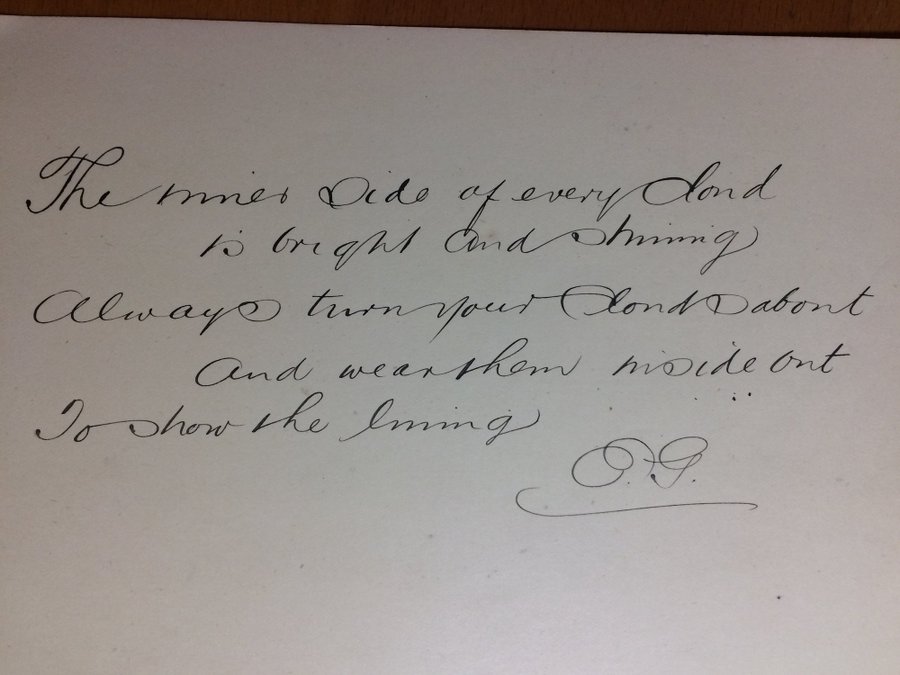 The inner side of every cloud
is bright and shining
Always turn your clouds about
And wear them inside out
To show the lining
P.G.